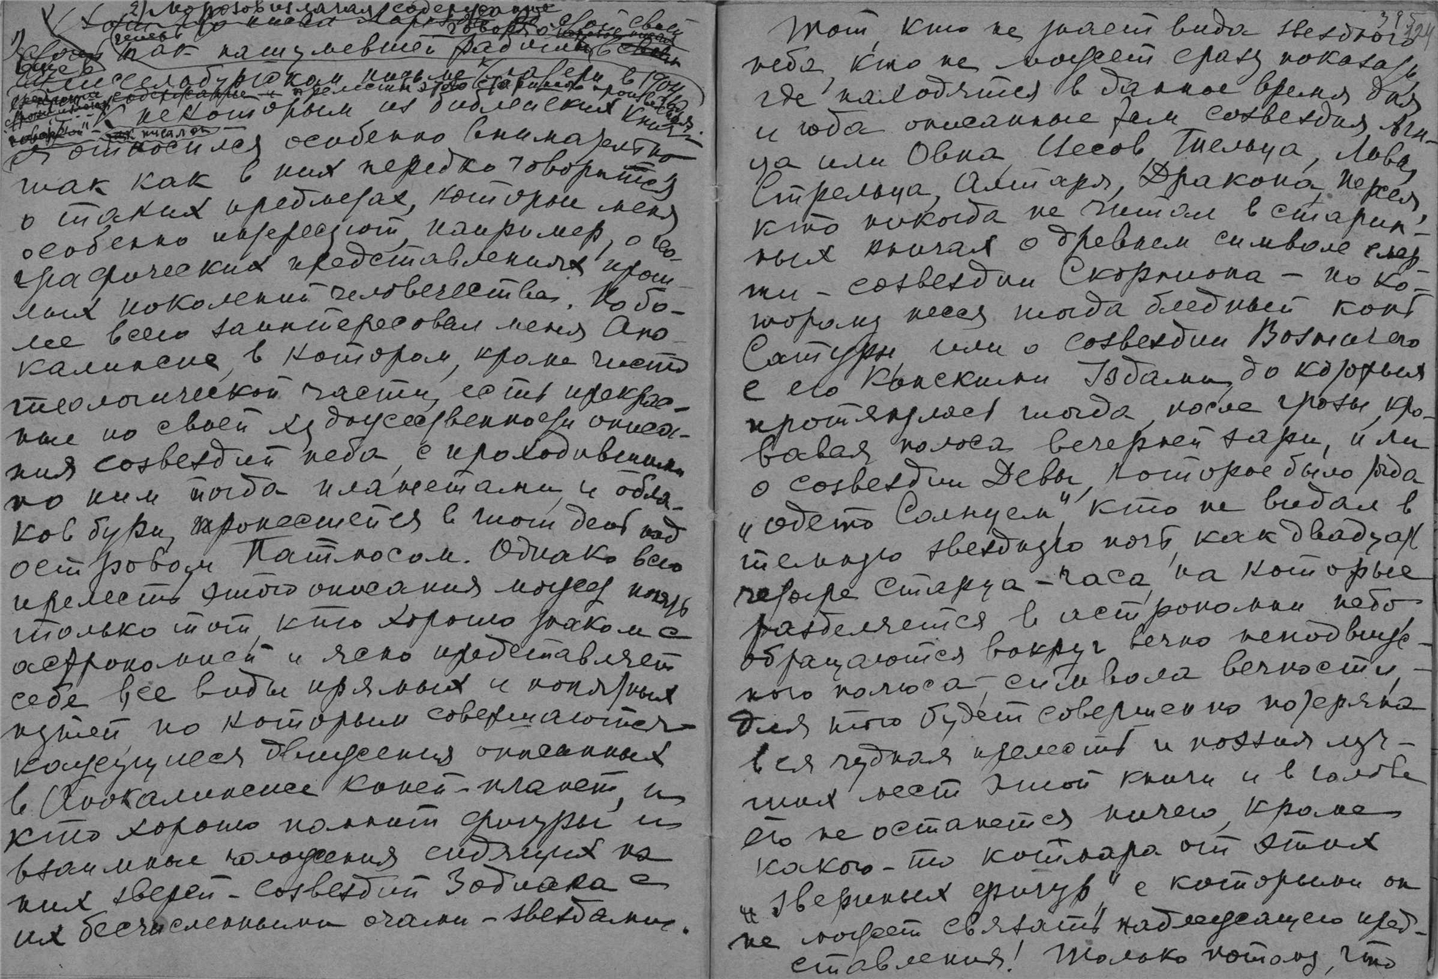 2) Морозов излагал содержание
так нашумевшей
Шлиссельбургским письме
некоторым из библейских книг
я относился особенно внимательно
так как в них нередко говорится
о таких предметах, которые меня
особенно интересуют, например, о гео-
графических представлениях прош-
лых поколений человечества. Но бо-
лее всего заинтересовал меня Апо-
калипсис, в котором, кроме чисто
теологической части, есть прекрас-
ные по своей художественности описа-
ния созвездий неба, с проходившими
по ним тогда планетами, и обла-
ков бури, пронесшейся в тот день над
островом Патмосом. Однако всю
прелесть этого описания может понять
только тот, кто хорошо знаком с
астрономией и ясно представляет
себе все виды прямых и попятных
путей по которым совершаются
кажущиеся движения описанных
в Апокалипсисе коней-планет, и
кто хорошо помнит фигуры и
взаимные положения сидящих на
них зверей-созвездий Зодиака с
их бесчисленными очами-звездами.
Тот, кто не знает вида звездного
неба, кто не может сразу показать,
где находятся в данное время дня
и года описанные там созвездия Аг-
ца или Овна, Весов, Тельца, Льва,
Стрельца, Алтаря, Дракона, Персея,
кто никогда не читал в старин-
ных книгах о древнем символе смер-
ти - созвездии Скорпиона - по ко-
торому несся тогда бледный конь
Сатурн, или о созвездии Возничего
с его Конскими Уздами, до которых
протянулась тогда, после грозы, кро-
вавая полоса вечерней зари, или
о созвездии Девы, которое было тогда
„одето Солнцем“, кто не видал в
темную звездную ночь, как двадцать
четыре старца-часа, на которые
разделяется в астрономии небо
обращаются вокруг вечно неподвиж-
ного полюса, - символа вечности, -
для того будет совершенно потеряна
вся чудная прелесть и поэзия луч-
ших мест этой книги и в голове
его не останется ничего, кроме
какого-то кошмара от этих
„звериных фигур“, с которыми он
не может связать надлежащего пред-
ставления! Только потому, что